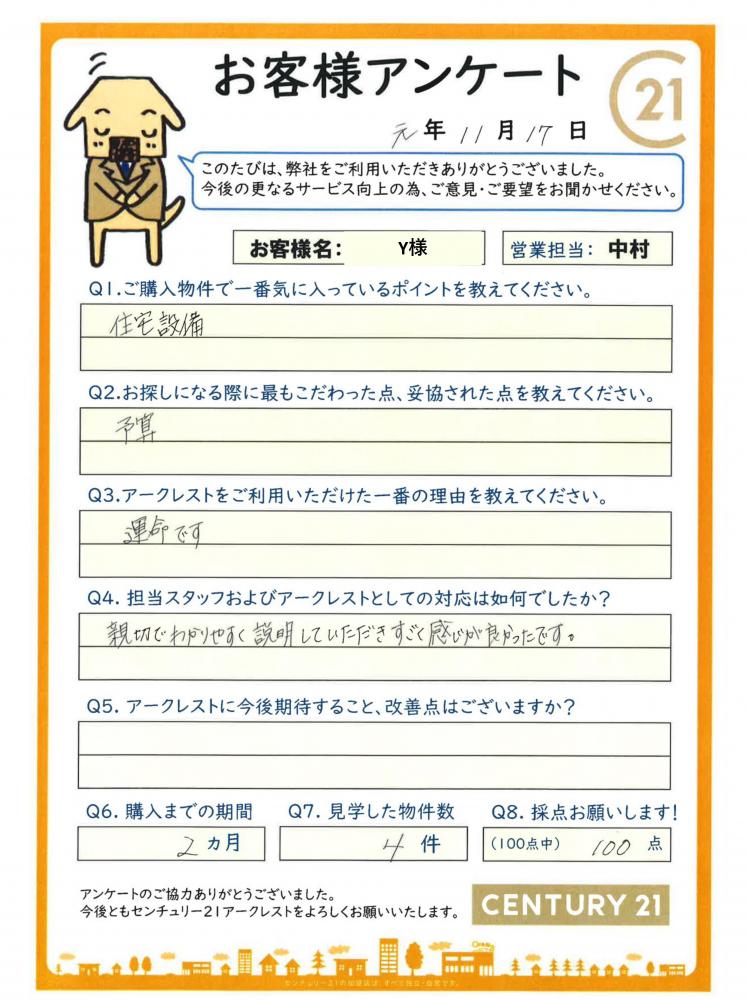 お客様アンケート
21
元年11月17日
このたびは、弊社をご利用いただきありがとうございました。
今後の更なるサービス向上の為、ご意見・ご要望をお聞かせください。
お客様名: Y様
営業担当: 中村
Q1.ご購入物件で一番気に入っているポイントを教えてください。
住宅設備
Q2.お探しになる際に最もこだわった点、妥協された点を教えてください。
予算
Q3.アークレストをご利用いただけた一番の理由を教えてください。
運命です
Q4. 担当スタッフおよびアークレストとしての対応は如何でしたか?
親切でわかりやすく説明していただきすごく感じが良かったです。
Q5. アークレストに今後期待すること、改善点はございますか?
Q6. 購入までの期間
2ヵ月
Q7. 見学した物件数
4件
Q8. 採点お願いします!
(100点中) 100点
アンケートのご協力ありがとうございました。
今後ともセンチュリー21アークレストをよろしくお願いいたします。
CENTURY 21
センチュリー21の加盟店は、すべて独立・自営です。